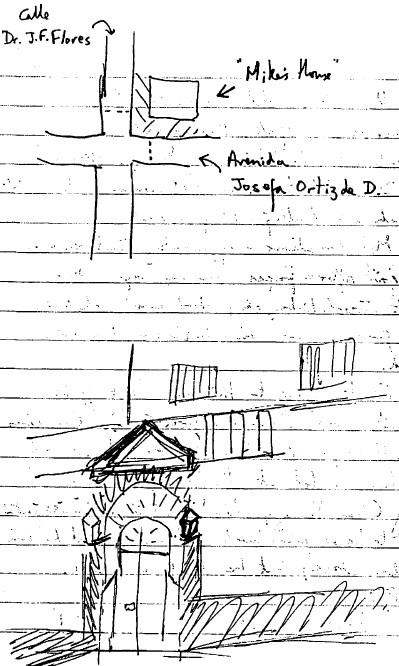 Calle
Dr. J.F. Flores
"Mike's House"
Avenida
Josefa Ortiz de D.